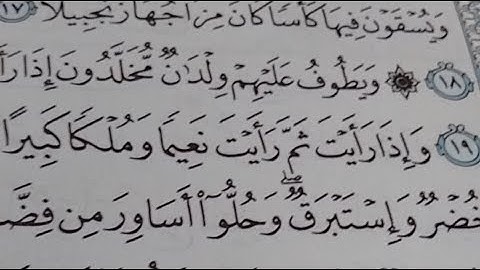 وَيُسْقَوْنَ فِيهَا كَأْسًا كَانَ مِزَاجُهَا زَنجَبِيلًا ١٧
١٨ ۞ وَيَطُوفُ عَلَيْهِمْ وِلْدَٰنٌ مُّخَلَّدُونَ إِذَا رَأَ
١٩ وَإِذَا رَأَيْتَ ثَمَّ رَأَيْتَ نَعِيمًا وَمُلْكًا كَبِيرًا
خُضْرٌ وَإِسْتَبْرَقٌ ۖ وَحُلُّوٓا۟ أَسَاوِرَ مِن فِضَّ